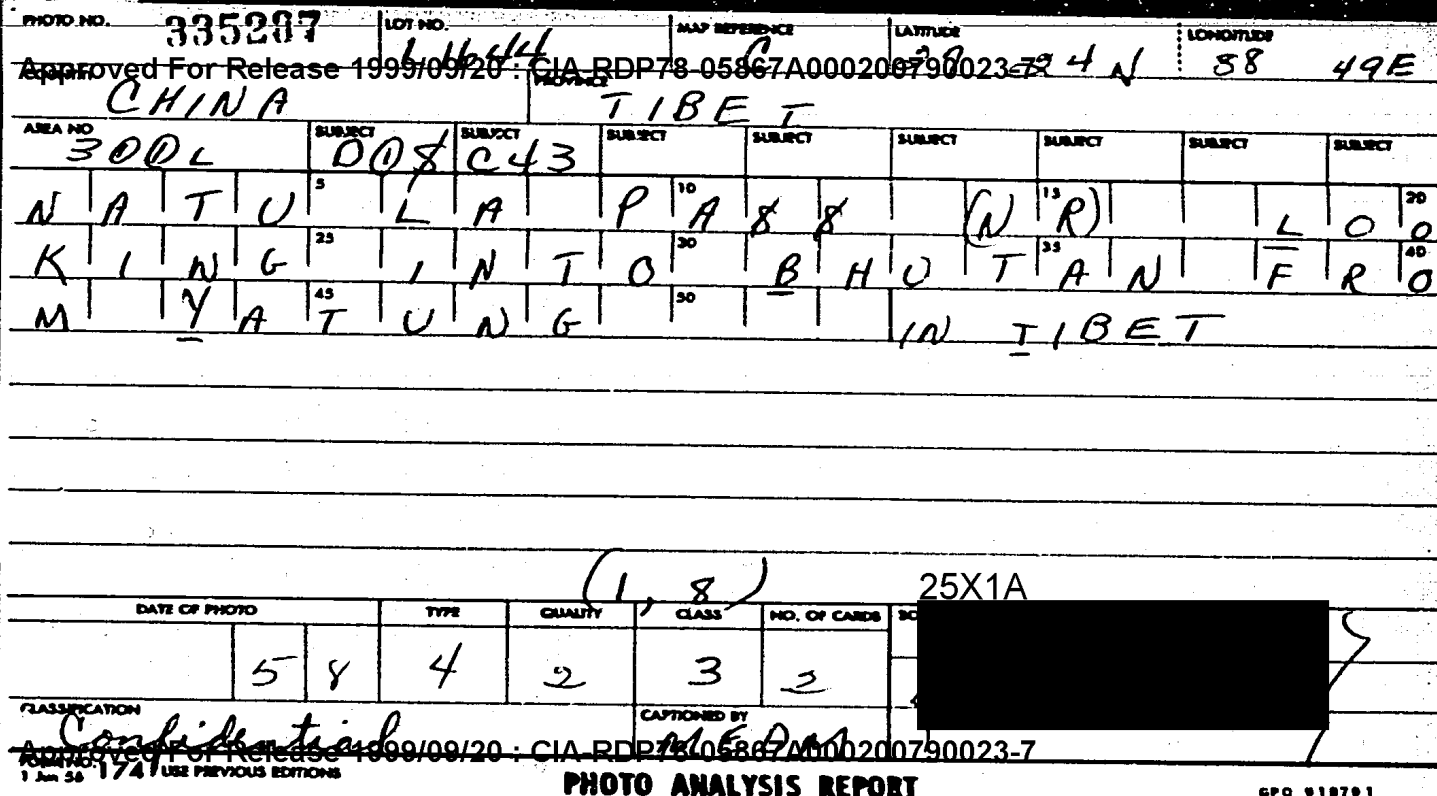 PHOTO NO. 335207 LOT NO. MAP REFERENCE C LATITUDE LONGITUDE
Approved For Release 1999/09/20 : CIA-RDP78-05867A000200790023-7 24 N 88 49E
COUNTRY CHINA PROVINCE TIBET
AREA NO 300L SUBJECT D08 SUBJECT C43 SUBJECT SUBJECT SUBJECT SUBJECT SUBJECT SUBJECT
NATU 5 LA P 10 ASS (N 15 R) LO 20 O
KING 25 INTO 30 BHUT 35 AN FR 40 O
M YA 45 TUNG 50 IN TIBET
(1, 8) 25X1A
DATE OF PHOTO TYPE QUALITY CLASS NO. OF CARDS
58 4 2 3 2
CLASSIFICATION Confidential CAPTIONED BY
Approved For Release 1999/09/20 : CIA-RDP78-05867A000200790023-7
FORM NO. 1741 USE PREVIOUS EDITIONS
1 Jun 56
PHOTO ANALYSIS REPORT